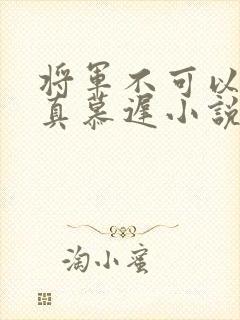 将軍不可以
真慕遲小說
淘小蜜